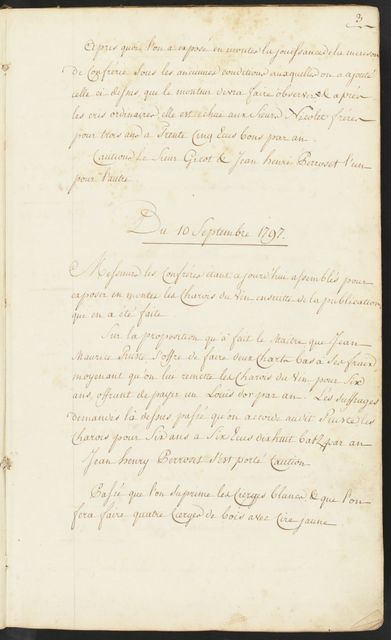 3
Après quoi l'on a exposé en montes la jouissance de la maison
de Confrérie sous les anciennes conditions auxquelles on a ajouté
celle ci dessus que le monteur devra faire observer & après
les cris ordinaires elle est échue aux Sieurs Nicolet frères
pour trois ans a Trente Cinq Ecus bons par an.
Cautions le Sieur Gicot & Jean Henri Perroset l'un
pour l'autre
Du 10 Septembre 1797.
Messieurs les Confrères étant ajourd'hui assemblés pour
exposer en montes les Charois du Vin ensuitte de la publication
qui en a été faite
Sur la proposition qu'à fait le Maitre que Jean
Maurice s'offre de faire deux Chars bas à ses fraix
moyenant qu'on lui remette les Charois du Vin pour Six
ans, offrant de payer un Louis d'or par an. Les suffrages
demandés là dessus passé qu'on accorde audit les
Charois pour Six ans a Six Ecus dixhuit batz par an
Jean henry Perroset s'est porté Caution
Passé que l'on suprime les Cierges blancs & que l'on
fera faire quatre Cierges de bois avec Cire jaune